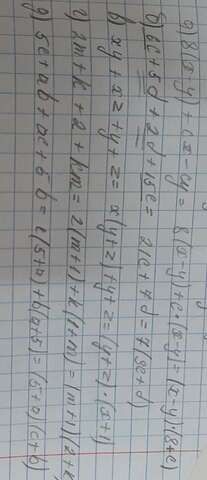 а) 8(x-y)+cx-cy= 8(x-y)+c·(x-y)=(x-y)·(8+c)
б) 6c+5d+2d+15c= 21c+7d=7(3c+d)
в) xy+xz+y+z= x(y+z)+y+z=(y+z)·(x+1)
г) 2m+k+2+km=2(m+1)+k(1+m)=(m+1)(2+k
д) 5c+ab+ac+5b=c(5+a)+b(a+5)=(5+a)(c+b)